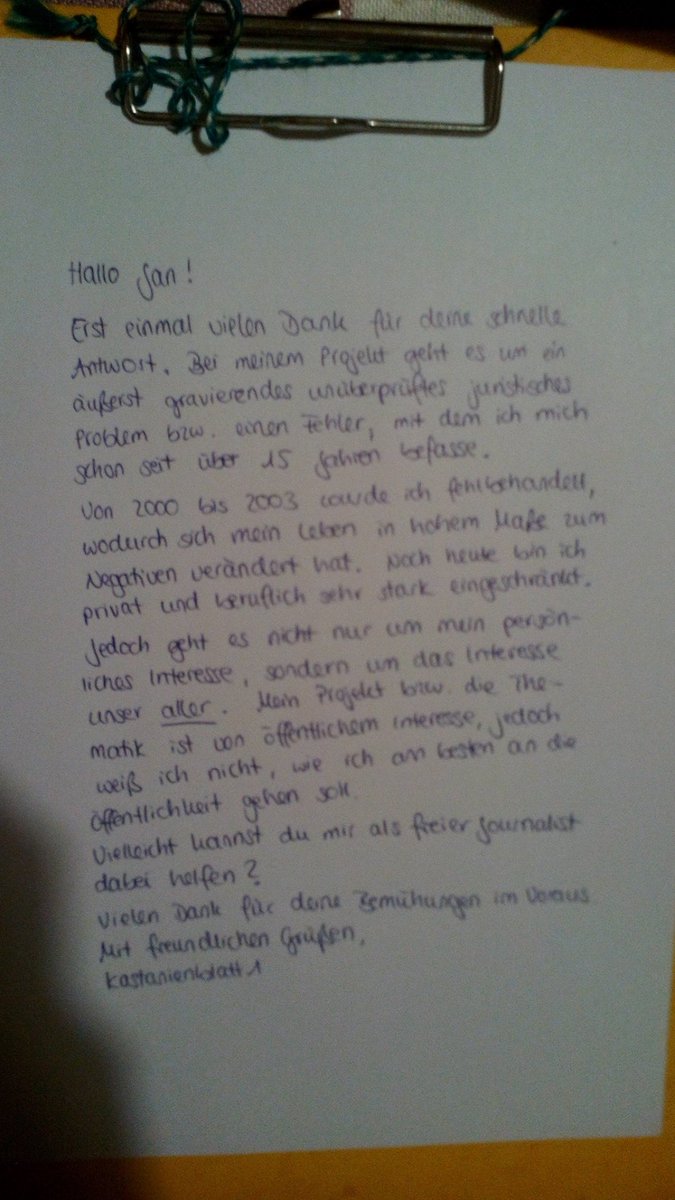 Hallo Jan!
Erst einmal vielen Dank für deine schnelle
Antwort. Bei meinem Projekt geht es um ein
äußerst gravierendes unüberprüftes juristisches
Problem bzw. einen Fehler, mit dem ich mich
schon seit über 15 Jahren befasse.
Von 2000 bis 2003 wurde ich fehlbehandelt,
wodurch sich mein Leben in hohem Maße zum
Negativen verändert hat. Noch heute bin ich
privat und beruflich sehr stark eingeschränkt.
Jedoch geht es nicht nur um mein persön-
liches Interesse, sondern um das Interesse
unser aller. Mein Projekt bzw. die The-
matik ist von öffentlichem Interesse, jedoch
weiß ich nicht, wie ich am besten an die
Öffentlichkeit gehen soll.
Vielleicht kannst du mir als freier Journalist
dabei helfen?
Vielen Dank für deine Bemühungen im Voraus
Mit freundlichen Grüßen,
Kastanienblatt1